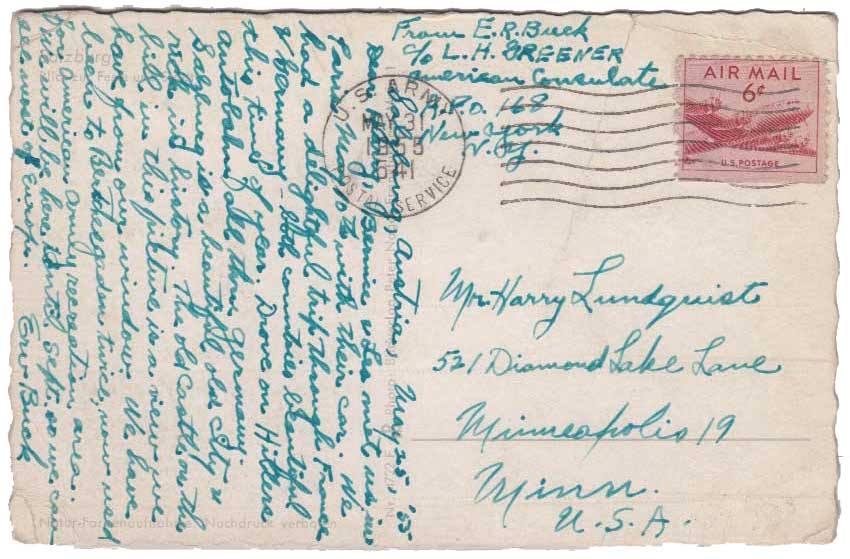 From E.R. Buck
c/o L. H. GREENER
American Consulate
A.P.O. 168
New York
N.Y.
U.S. ARMY
MAY 31
1955
641
POSTAL SERVICE
AIR MAIL
6¢
U.S. POSTAGE
Mr. Harry Lundquist
521 Diamond Lake Lane
Minneapolis 19
Minn.
U.S.A.
Salzburg, Austria, May 25, '55
Dear Bernice & Les met us in
Paris May with their car. We
had a delightful trip through France
& Germany - both countries beautiful
this time of year. Drove on Hitlers
autobahn all thru Germany.
Salzburg is a beautiful old city &
rich in history. The old Castle on the
hill in this picture is a view we
have from our window. We have
been to Berthesgaden twice, now used
for American Army recreation area.
We will be here until Sept. so we can
see more of Europe. Erv Buck
Salzburg
Natur-Farbenaufnahme, Nachdruck verboten